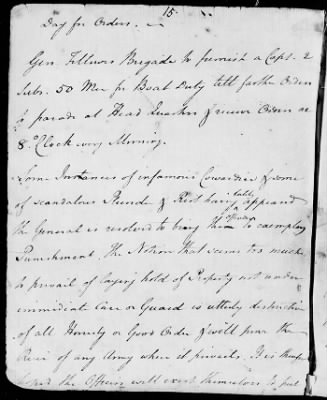 15.
Day for Orders.
Gen. Fellows Brigade to furnish a Capt. 2
Subs. 50 Men for Boat Duty till farther Orders
to parade at Head Quarters & receive Orders at
8 oClock every Morning.
Some Instances of infamous Cowardice & some
of scandalous Plunder & Riot having lately appeared
the General is resolved to bring the offenders to exemplary
Punishment. The Notion that seems too much
to prevail of laying hold of Property not under
immediate Care or Guard is utterly destructive
of all Honesty or Good Order & will prove the
Ruin of any Army where it prevails. It is therefore
hoped the Officers will exert themselves to put